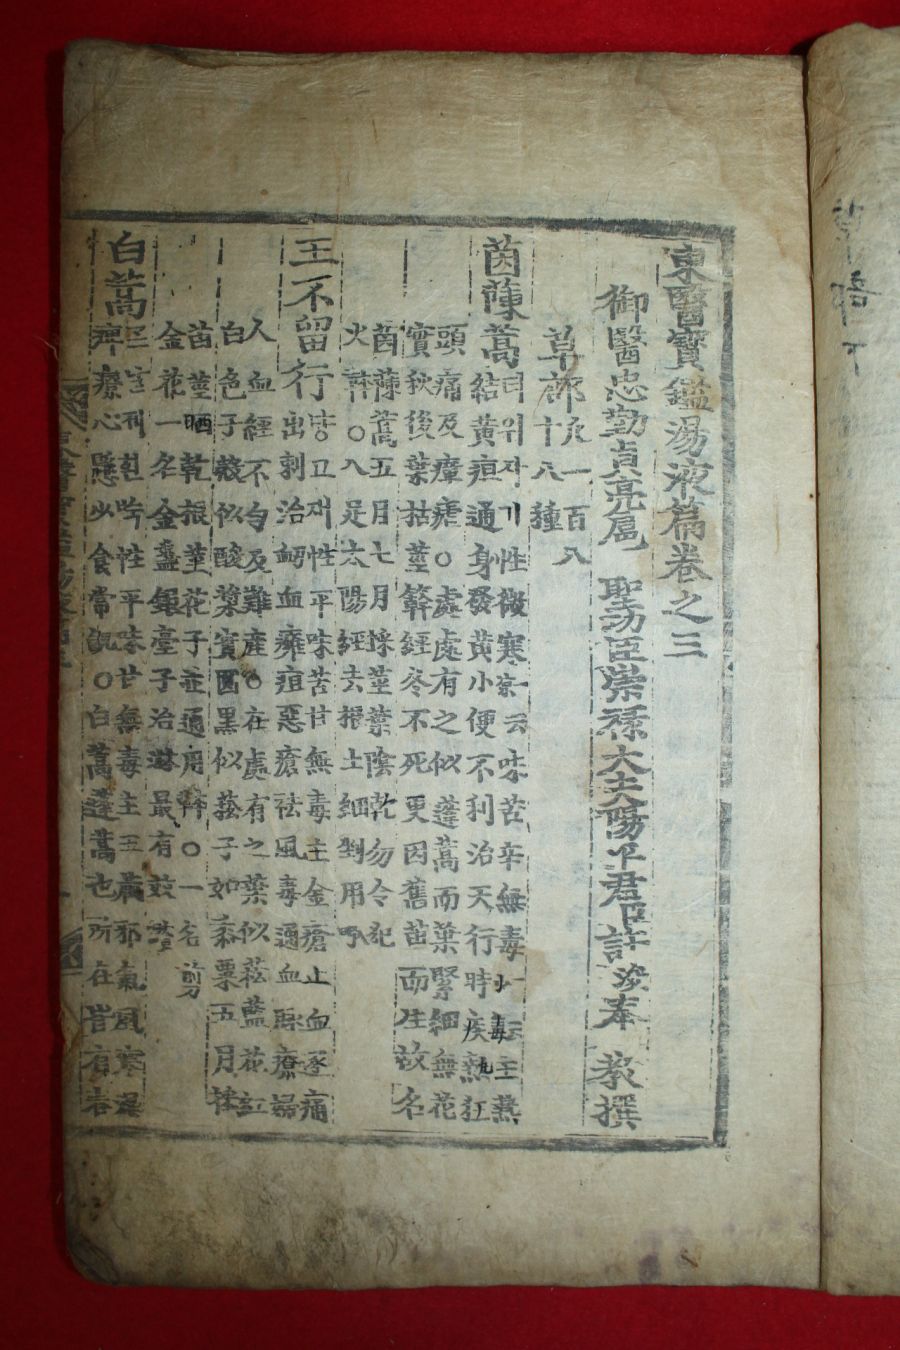 東醫寶鑑湯液篇卷之三
御醫忠勤貞亮扈 聖功臣崇祿大夫陽平君臣許浚奉 敎撰
草部凡一百八
十八種
茵蔯蒿더위자기性微寒一云凉味苦辛無毒一云小毒主熱
結黃疸通身發黃小便不利治天行時疾熱狂
頭痛及瘴瘧○處處有之似蓬蒿而葉緊細無花
實秋後葉枯莖簳經冬不死更因舊苗而生故名
茵蔯蒿五月七月採莖葉陰乾勿令犯
火○入足太陽經去根土細剉用
王不留行당고재性平味苦甘無毒主金瘡止血逐痛
出刺治衄血癰疽惡瘡祛風毒通血脉療婦
人血經不勻及難産○在處有之葉似菘藍花紅
白色子殼似酸漿實圓黑似菘子如黍粟五月採
苗莖晒乾根莖花子並通用○一名剪
金花一名金盞銀臺子治淋最有效
白蒿性平味甘無毒主五藏邪氣風寒濕
痺療心懸少食常飢○白蒿蓬蒿也所在皆有春